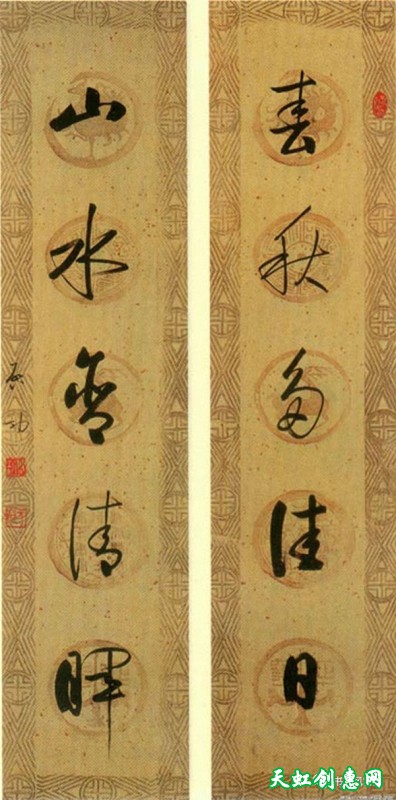 春秋多佳日
山水含清晖
启功
天虹创惠网